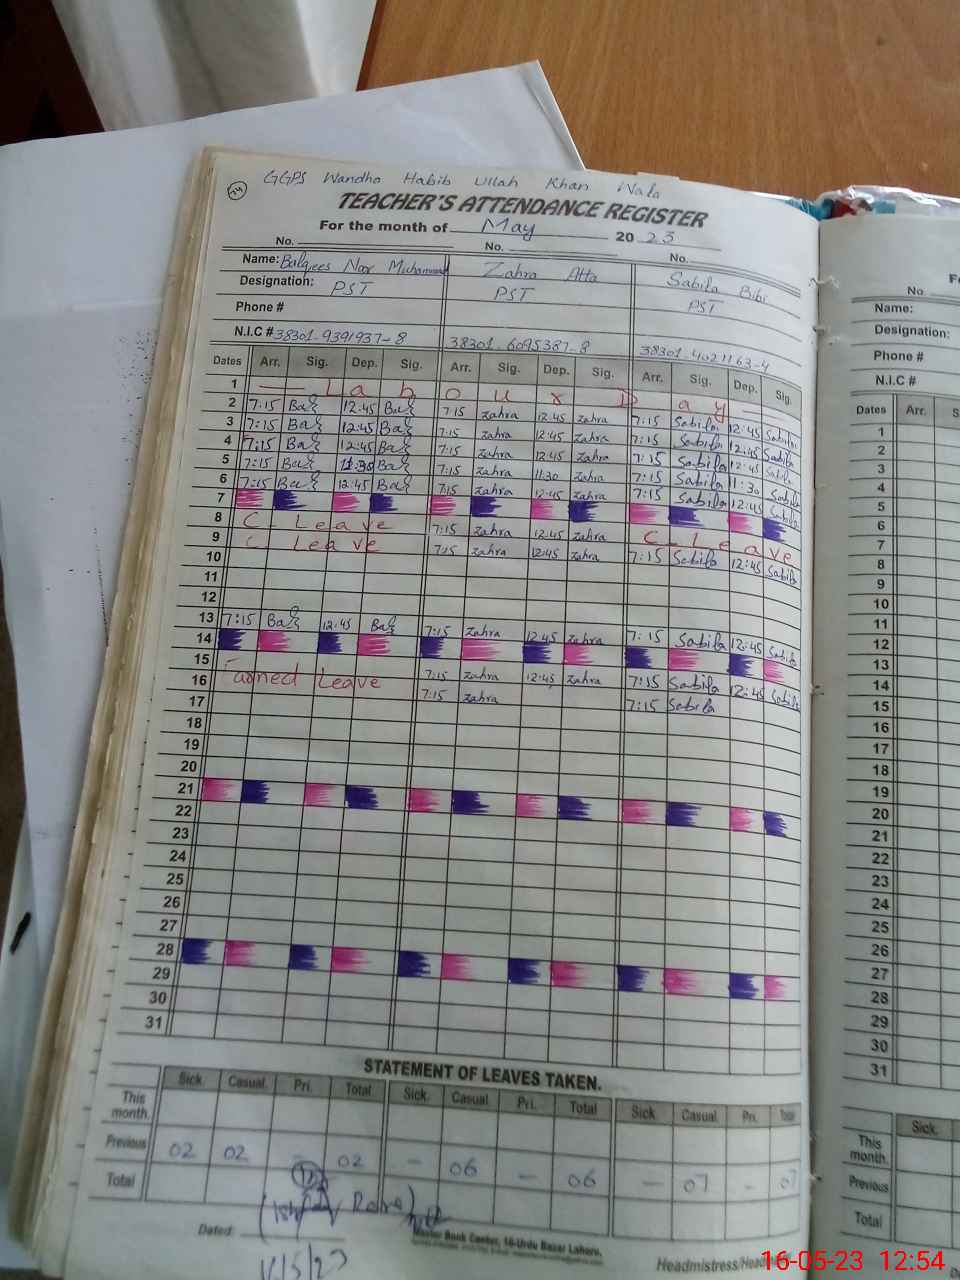 24
GGPS Wandha Habib Ullah Khan Wala
TEACHER'S ATTENDANCE REGISTER
For the month of May 2023
No. No. No.
Name: Balqees Noor Muhammad Zahra Atta Sabila Bibi
Designation: PST PST PST
Phone #
N.I.C # 38301-9391937-8 38301-6095387-8 38301-4021163-4
Dates Arr. Sig. Dep. Sig. Arr. Sig. Dep. Sig. Arr. Sig. Dep. Sig.
1 Labour Day
2 7:15 12:45 7:15 zahra 12:45 zahra 7:15 Sabila 12:45 Sabila
3 7:15 12:45 7:15 zahra 12:45 zahra 7:15 Sabila 12:45 Sabila
4 7:15 12:45 7:15 zahra 12:45 zahra 7:15 Sabila 12:45 Sabila
5 7:15 11:30 7:15 zahra 11:30 zahra 7:15 Sabila 11:30 Sabila
6 7:15 12:45 7:15 zahra 12:45 zahra 7:15 Sabila 12:45 Sabila
7
8 C. Leave 7:15 zahra 12:45 zahra C. Leave
9 C. Leave 7:15 zahra 12:45 zahra 7:15 Sabila 12:45 Sabila
10
11
12
13 7:15 12:45 7:15 zahra 12:45 zahra 7:15 Sabila 12:45 Sabila
14
15 Earned Leave 7:15 zahra 12:45 zahra 7:15 Sabila 12:45 Sabila
16 7:15 zahra 7:15 Sabila
17
18
19
20
21
22
23
24
25
26
27
28
29
30
31
STATEMENT OF LEAVES TAKEN.
Sick. Casual. Pri. Total Sick. Casual Pri. Total Sick Casual Pri. Total
This month.
Previous 02 02 - 02 - 06 - 06 - 07 - 07
Total
Dated:
Master Book Center, 16-Urdu Bazar Lahore.
Headmistress/
No.
Name:
Designation:
Phone #
N.I.C #
Dates Arr.
1
2
3
4
5
6
7
8
9
10
11
12
13
14
15
16
17
18
19
20
21
22
23
24
25
26
27
28
29
30
31
Sick.
This month.
Previous
Total
16-05-23 12:54